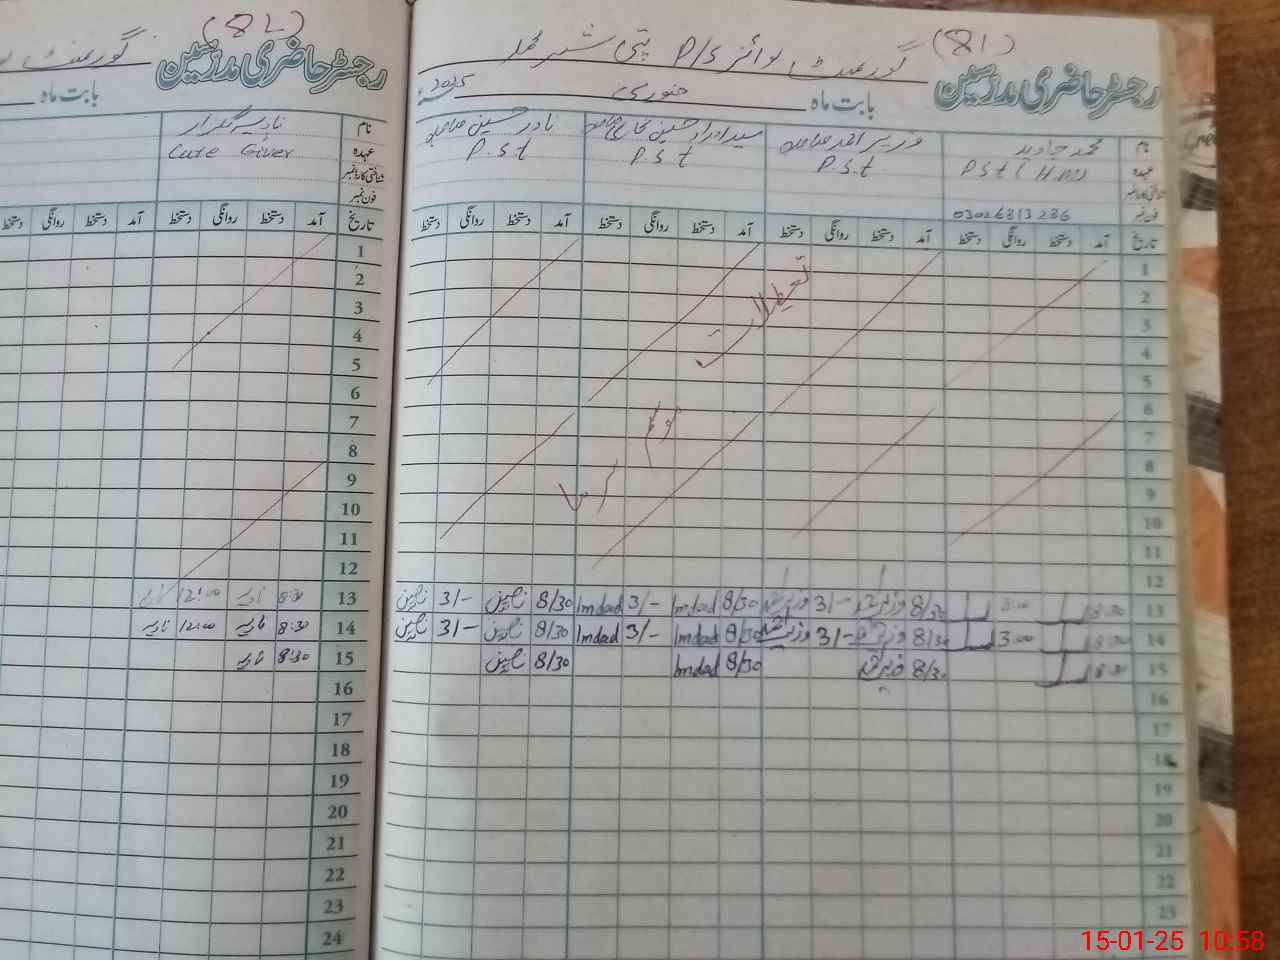 (81)
گورنمنٹ بوائز P/S پتی شیر محمد
رجسٹر حاضری مدرسین
بابت ماہ جنوری 2025
نام محمد جاوید وزیر احمد صاحب سید امداد حسین نادر حسین صاحب
عہدہ PSt (H.M) P.S.t P.S.t P.S.t
شناختی کارڈ نمبر
فون نمبر 03026813286
تاریخ آمد دستخط روانگی دستخط آمد دستخط روانگی دستخط آمد دستخط روانگی دستخط آمد دستخط روانگی دستخط
1
2
3
4
5
6
7
8
9
10
11
12
تعطیلات
موسم
سرما
13 8:30 3:00 8/30 وزیر احمد 3/- وزیر احمد 8/30 Imdad 3/- Imdad 8/30 نادر حسین 3/- نادر حسین
14 8:30 3:00 8/30 وزیر احمد 3/- وزیر احمد 8/30 Imdad 3/- Imdad 8/30 نادر حسین 3/- نادر حسین
15 8:30 8/30 وزیر احمد 8/30 Imdad 8/30 نادر حسین
16
17
18
19
20
21
22
23
(82)
گورنمنٹ
رجسٹر حاضری مدرسین
بابت ماہ
نام نادیہ گلزار
عہدہ Care Giver
شناختی کارڈ نمبر
فون نمبر
تاریخ آمد دستخط روانگی دستخط آمد دستخط روانگی دستخط
1
2
3
4
5
6
7
8
9
10
11
12
13 8:30 نادیہ 12:00 نادیہ
14 8:30 نادیہ 12:00 نادیہ
15 8:30 نادیہ
16
17
18
19
20
21
22
23
24
15-01-25 10:58